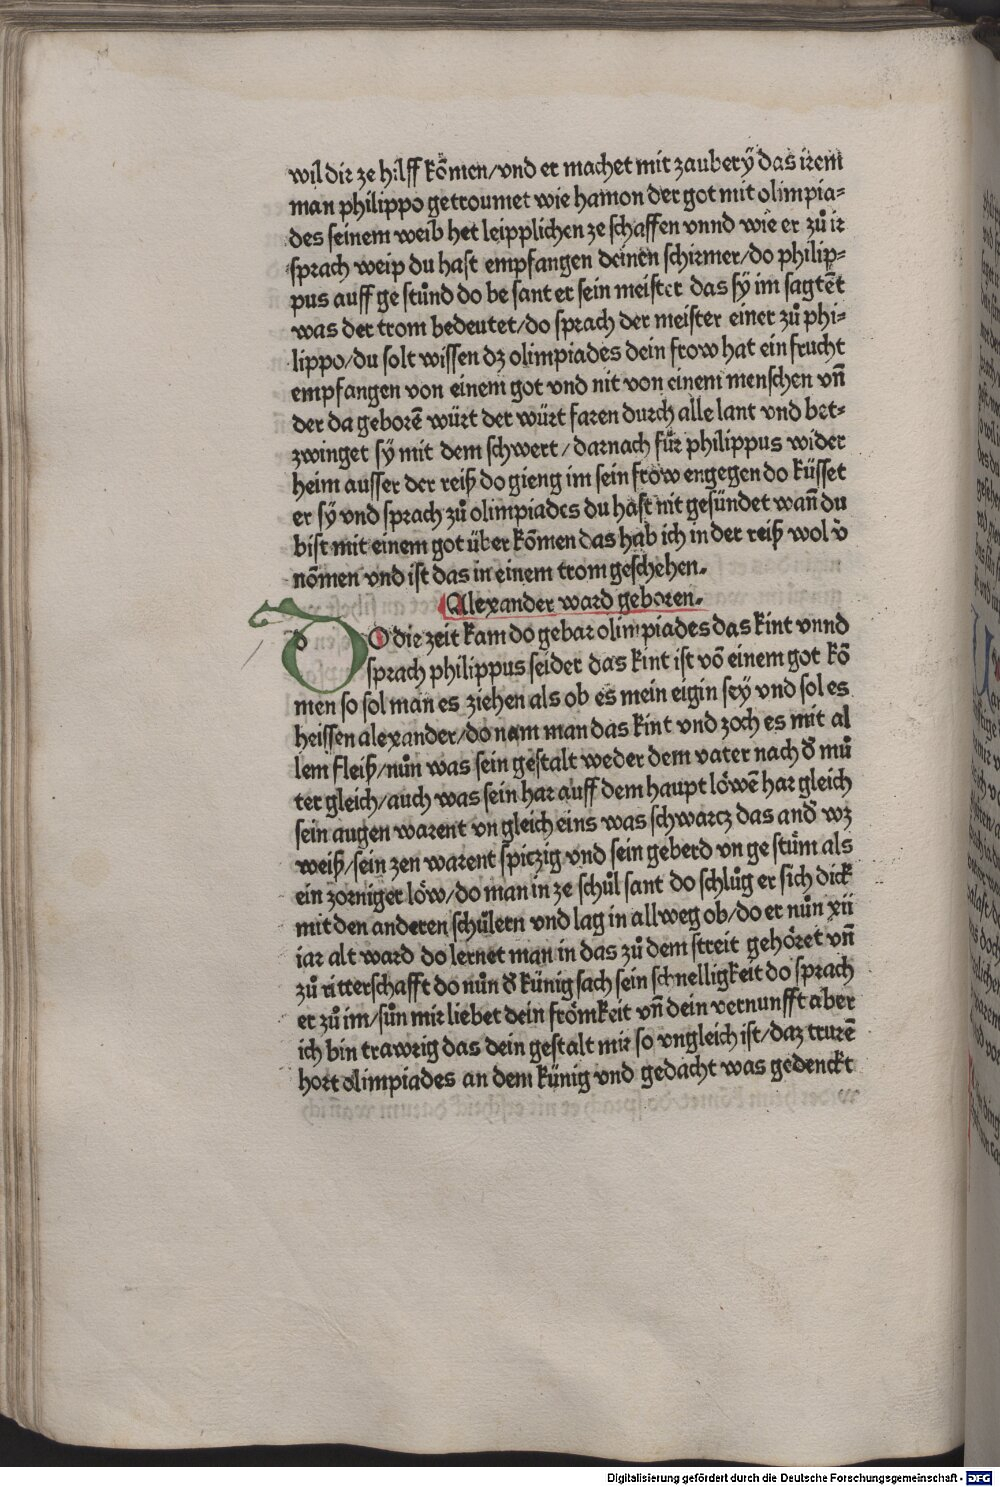 wil dir ze hilff kōmen/vnd er machet mit zaubery̆ das irem
man philippo getroumet wie hamon der got mit olimpia⸗
des seinem weib het leipplichen ze schaffen vnnd wie er zů ir
sprach weip du hast empfangen deinen schirmer/do philip⸗
pus auff ge stůnd do be sant er sein meister das sy̆ im sagtēt
was der trom bedeutet/do sprach der meister einer zů phi⸗
lippo/du solt wissen dz olimpiades dein frow hat ein frucht
empfangen von einem got vnd nit von einem menschen vn̄
der da geborē würt der würt faren durch alle lant vnd bet⸗
zwinget sy̆ mit dem schwert/darnach fůr philippus wider
heim ausser der reiß do gieng im sein frow engegen do küsset
er sy̆ vnd sprach zů olimpiades du hast nit gesündet wan̄ du
bist mit einem got über kōmen das hab ich in der reiß wol v̄
nōmen vnd ist das in einem trom geschehen.
Alexander ward geboren.
DO die zeit kam do gebar olimpiades das kint vnnd
sprach philippus seider das kint ist vō einem got kō
men so sol man es ziehen als ob es mein eigin sey vnd sol es
heissen alexander/do nam man das kint vnd zoch es mit al
lem fleiß/nůn was sein gestalt weder dem vater nach đ mů
ter gleich/auch was sein har auff dem haupt löwē har gleich
sein augen warent vn gleich eins was schwarcz das anđ wz
weiß/sein zen warent spiczig vnd sein geberd vn ge stům als
ein zorniger löw/do man in ze schůl sant do schlůg er sich dick
mit den anderen schůlern vnd lag in allweg ob/do er nůn xii
iar alt ward do lernet man in das zů dem streit gehöret vn̄
zů ritterschafft do nůn đ künig sach sein schnelligkeit do sprach
er zů im/sůn mir liebet dein frömkeit vn̄ dein vernunfft aber
ich bin trawrig das dein gestalt mir so vngleich ist/daz trurē
hort olimpiades an dem künig vnd gedacht was gedenckt
Digitalisierung gefördert durch die Deutsche Forschungsgemeinschaft - DFG